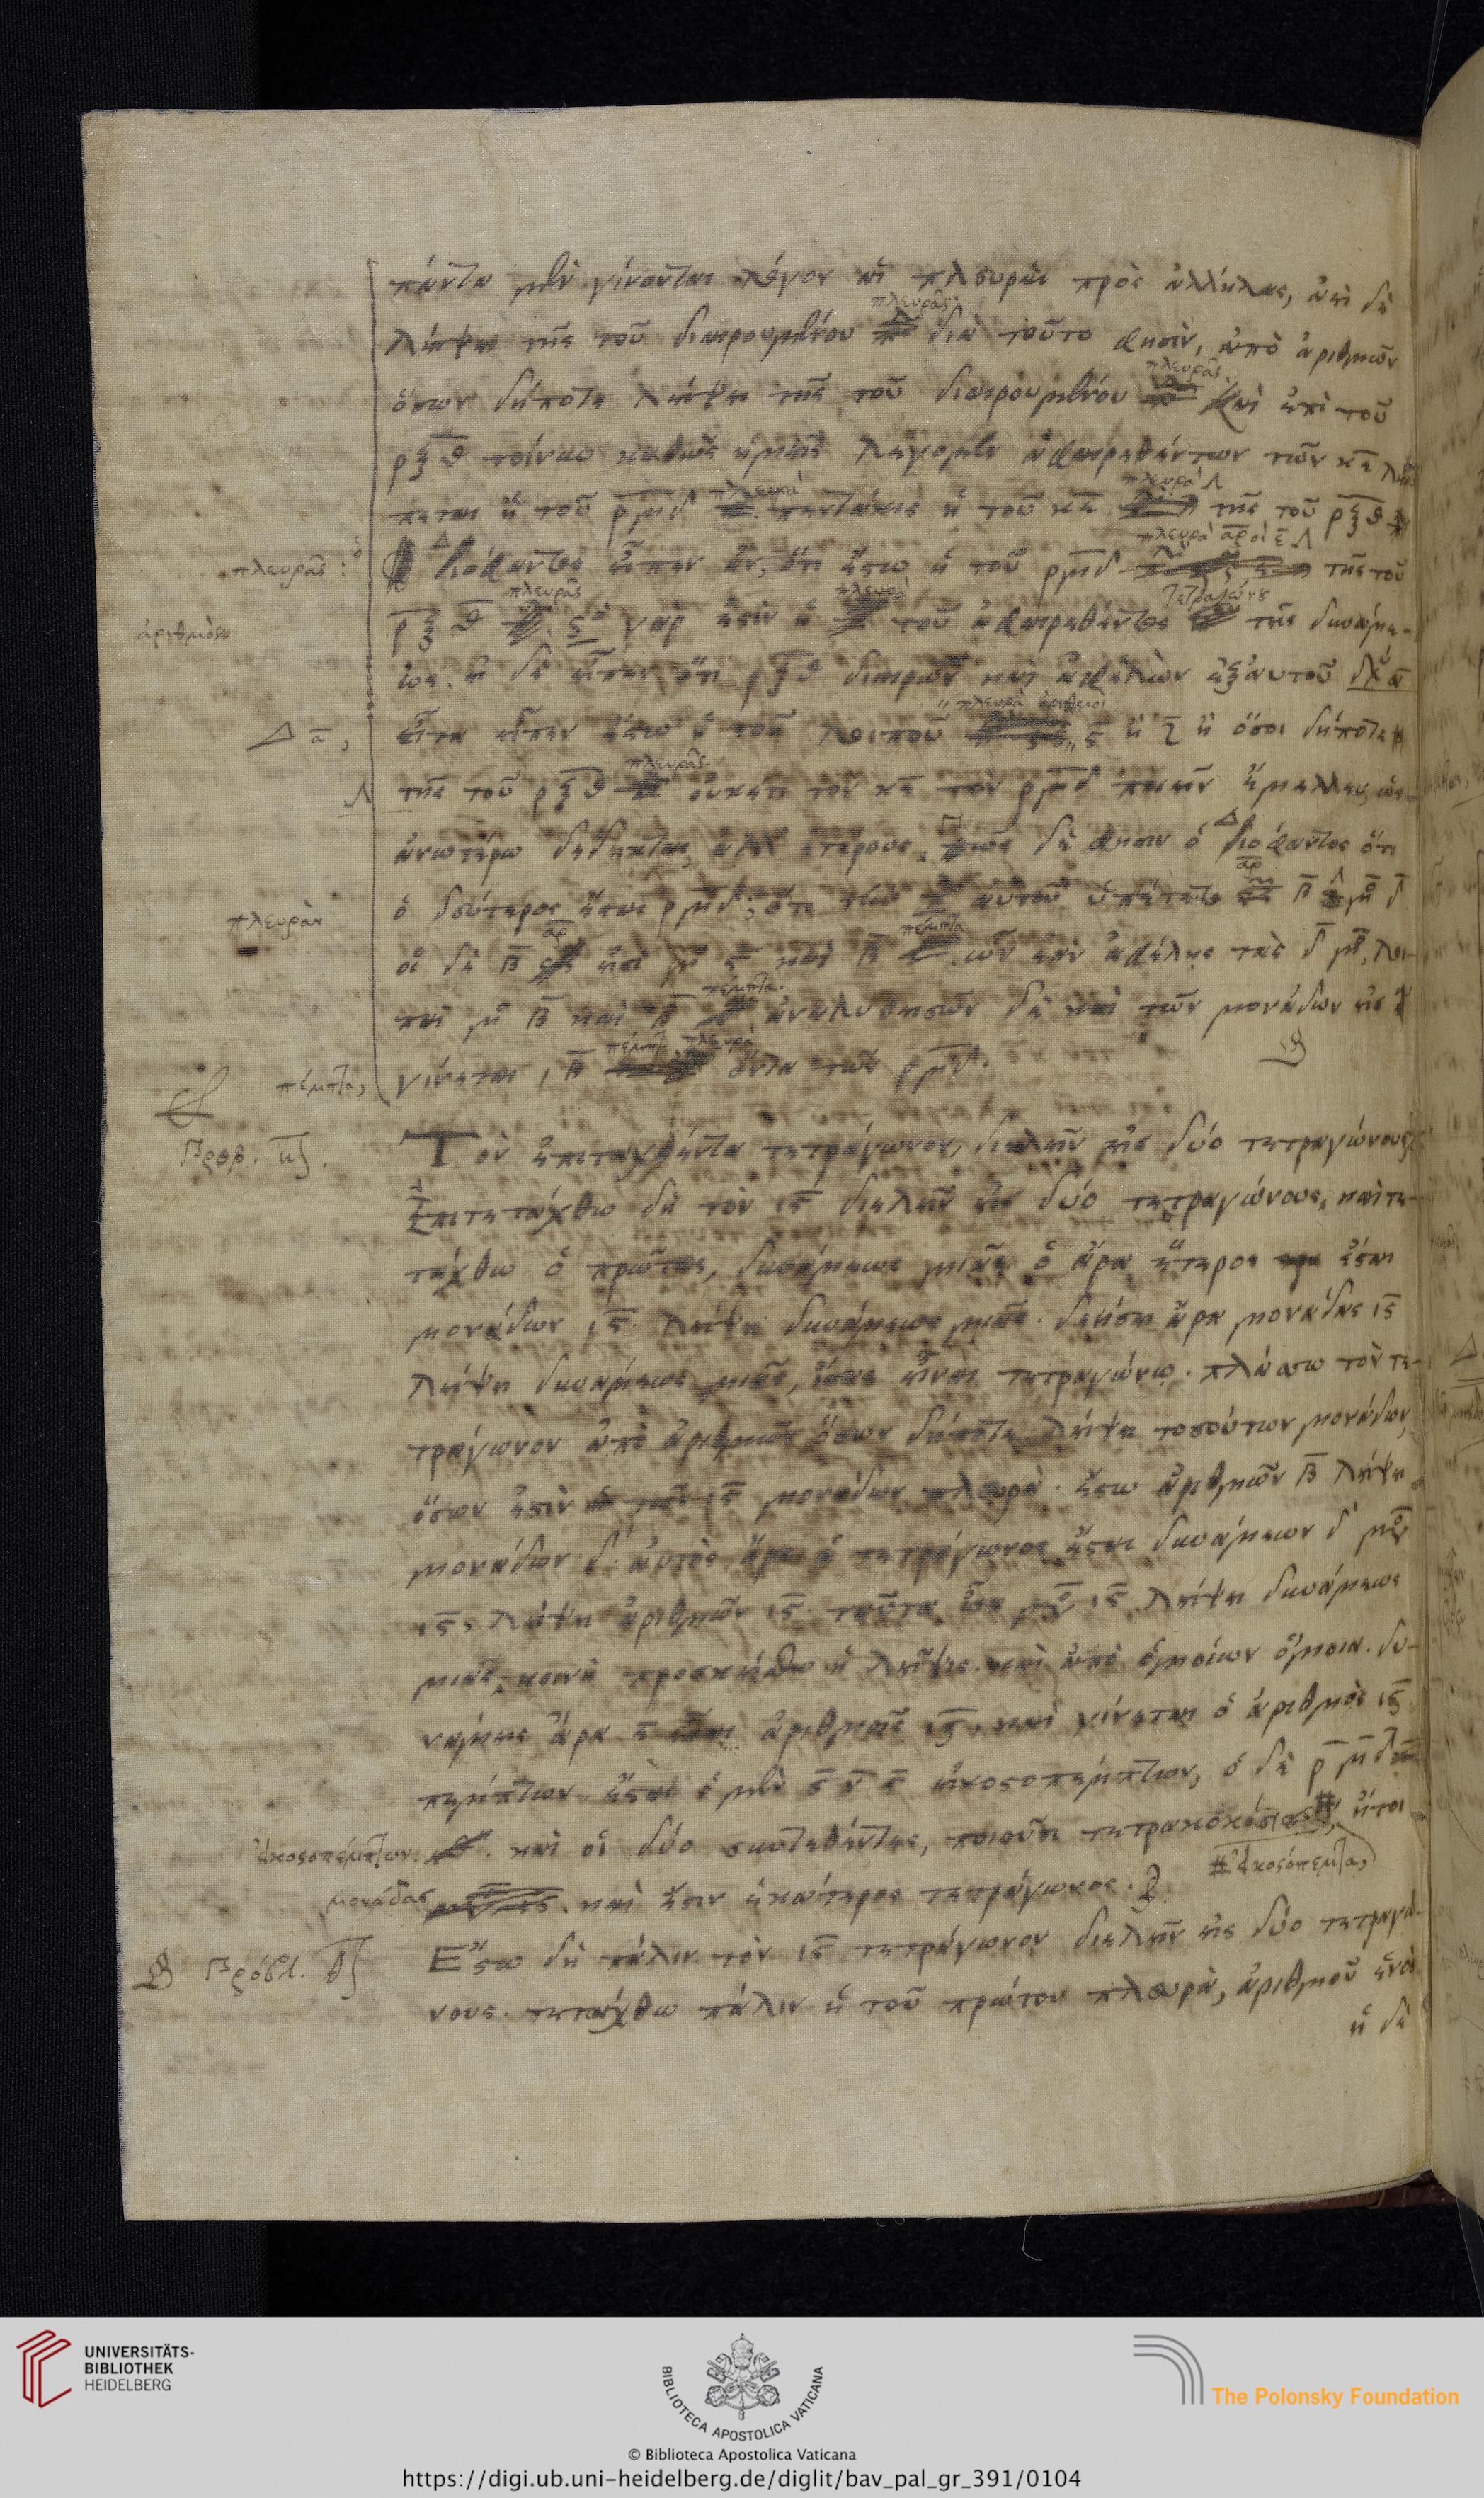 πάντα μὲν γίνονται λόγον αἱ πλευραὶ πρὸς ἀλλήλας, ἀεὶ δὲ
λείψει τῆς τοῦ διαιρουμένου πλευρᾶς διὰ τοῦτο φησὶν, ἀπὸ ἀριθμῶν
ὅσων δήποτε λείψει τῆς τοῦ διαιρουμένου πλευρᾶς καὶ ἐπὶ τοῦ
ρξθ τοίνυν καθὼς ἡμεῖς λέγομεν ἀφαιρεθέντων τῶν κε
ἡ τοῦ ρμδ πλευρὰ πεντάκις ἡ τοῦ κε πλευρὰ τῆς τοῦ ρξθ
πλευρᾶς: ὁ Διόφαντος εἶπεν ἂν, ὅτι ἔστω ἡ τοῦ ρμδ πλευρὰ ἀροὶ ε τῆς τοῦ
ἀριθμὸς ρξθ πλευρᾶς ς γάρ ἐστιν ἡ πλευρὰ τοῦ ἀφαιρεθέντος τετραγώνου τῆς δυνάμε-
ως. εἰ δὲ εἶπεν ὅτι ρξθ διαιρῶν καὶ ἀφελὼν ἐξ αὐτοῦ α
Δ α, εἶτα εἶπεν ἔστω ἡ τοῦ λοιποῦ πλευρὰ ἀριθμοὶ ς ἢ ζ ἢ ὅσοι δήποτε
τῆς τοῦ ρξθ πλευρᾶς οὐκέτι τὸν κε τὸν ρμδ ποιεῖν ἔμελλεν, ὡς
ἀνωτέρω δέδεικται, ἀλλ ἑτέρους. πῶς δὲ φησιν ὁ Διόφαντος ὅτι
πλευρὰν ὁ δεύτερος ἔσται ρμδ; ὅτι τὴν αὐτοῦ ὑπέθετο αρ β μο δ
οἱ δὲ β αρ εἰσὶ μο ς καὶ β πέμπτα ὧν ἐὰν ἀφέλῃς τὰς δ μο, λοι-
παὶ μο β καὶ β πέμπτα. ἀναλυθεισῶν δὲ καὶ τῶν μονάδων εἰς ε
πέμπτα, γίνεται ιβ πέμπτα πλευρὰ ὄντα τῶν ρμδ.
Προβ. κζ. Τὸν ἐπιταχθέντα τετράγωνον, διελεῖν εἰς δύο τετραγώνους
Ἐπιτετάχθω δὴ τὸν ις διελεῖν εἰς δύο τετραγώνους, καὶ τε-
τάχθω ὁ πρῶτος, δυνάμεως μιᾶς ὁ ἄρα ἕτερος ἔσται
μονάδων ις λείψει δυνάμεως μιᾶς. δεήσει ἄρα μονάδας ις
λείψει δυνάμεως μιᾶς, ἴσας εἶναι τετραγώνῳ. πλάσσω τὸν τε-
τράγωνον ἀπὸ ἀριθμῶν ὅσων δήποτε λείψει τοσούτων μονάδων,
ὅσων ἐστὶν ἡ τῶν ις μονάδων πλευρὰ. ἔστω ἀριθμῶν β λείψει
μονάδων δ. αὐτὸς ἄρα ὁ τετράγωνος ἔσται δυνάμεων δ μο
ις, λείψει ἀριθμῶν ις. ταῦτα ἴσα μο ις λείψει δυνάμεως
μιᾶς, κοινὴ προσκείσθω ἡ λεῖψις καὶ ἀπὸ ὁμοίων ὅμοια. δυ-
νάμεις ἄρα ε ἴσαι ἀριθμοῖς ις, καὶ γίνεται ὁ ἀριθμὸς ις
πέμπτων. ἔσται ὁ μὲν ς ν ς εἰκοσοπέμπτων, ὁ δὲ ρμδ
εἰκοσοπέμπτων. καὶ οἱ δύο συντεθέντες, ποιοῦσι τετρακόσια # ἤτοι
# εἰκοσόπεμπτα,
μονάδας ις. καὶ ἔστιν ἑκάτερος τετράγωνος.
Πρόβλ. θ Ἔστω δὴ πάλιν τὸν ις τετράγωνον διελεῖν εἰς δύο τετραγώ-
νους. τετάχθω πάλιν ἡ τοῦ πρώτου πλευρὰ, ἀριθμοῦ ἑνός
ἡ δὲ
UNIVERSITÄTS-
BIBLIOTHEK
HEIDELBERG
BIBLIOTECA APOSTOLICA VATICANA
© Biblioteca Apostolica Vaticana
The Polonsky Foundation
https://digi.ub.uni-heidelberg.de/diglit/bav_pal_gr_391/0104